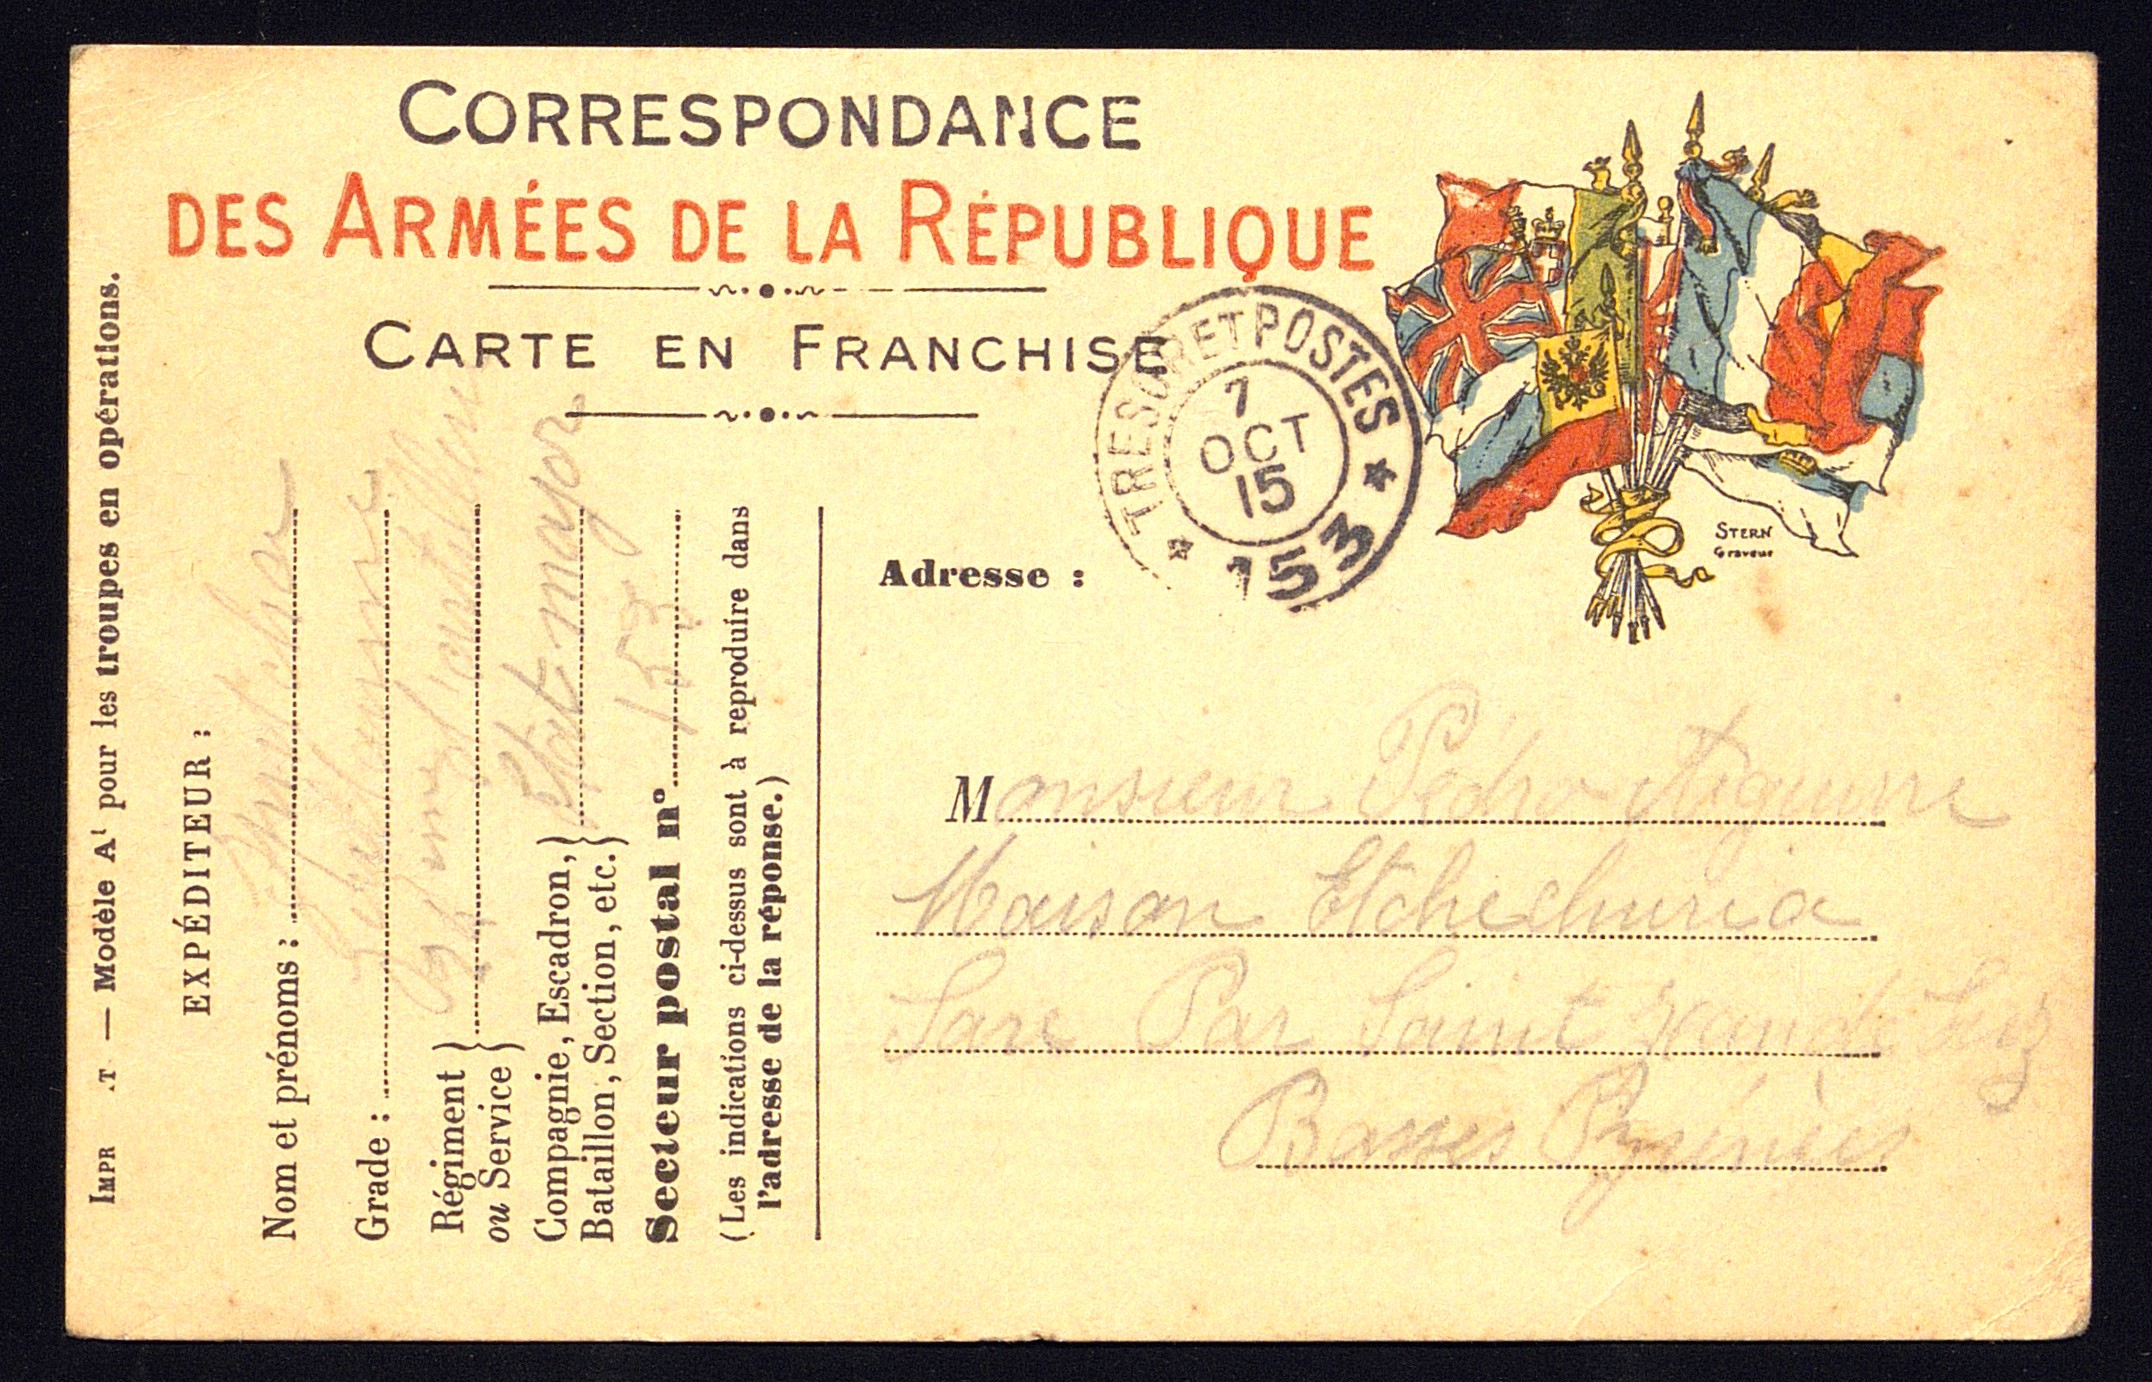 CORRESPONDANCE
DES ARMÉES DE LA RÉPUBLIQUE
CARTE EN FRANCHISE
TRESOR ET POSTES
7
OCT
15
* 153 *
STERN
Graveur
Adresse :
Monsieur Pedro Aguirre
Maison Etchechuria
Sare Par Saint Jean de Luz
Basses Pyrénées
IMPR .T — Modèle A¹ pour les troupes en opérations.
EXPÉDITEUR :
Nom et prénoms :
Grade :
Régiment
ou Service
Compagnie, Escadron,
Bataillon, Section, etc.
Etat major
Secteur postal n° 153
(Les indications ci-dessus sont à reproduire dans
l'adresse de la réponse.)